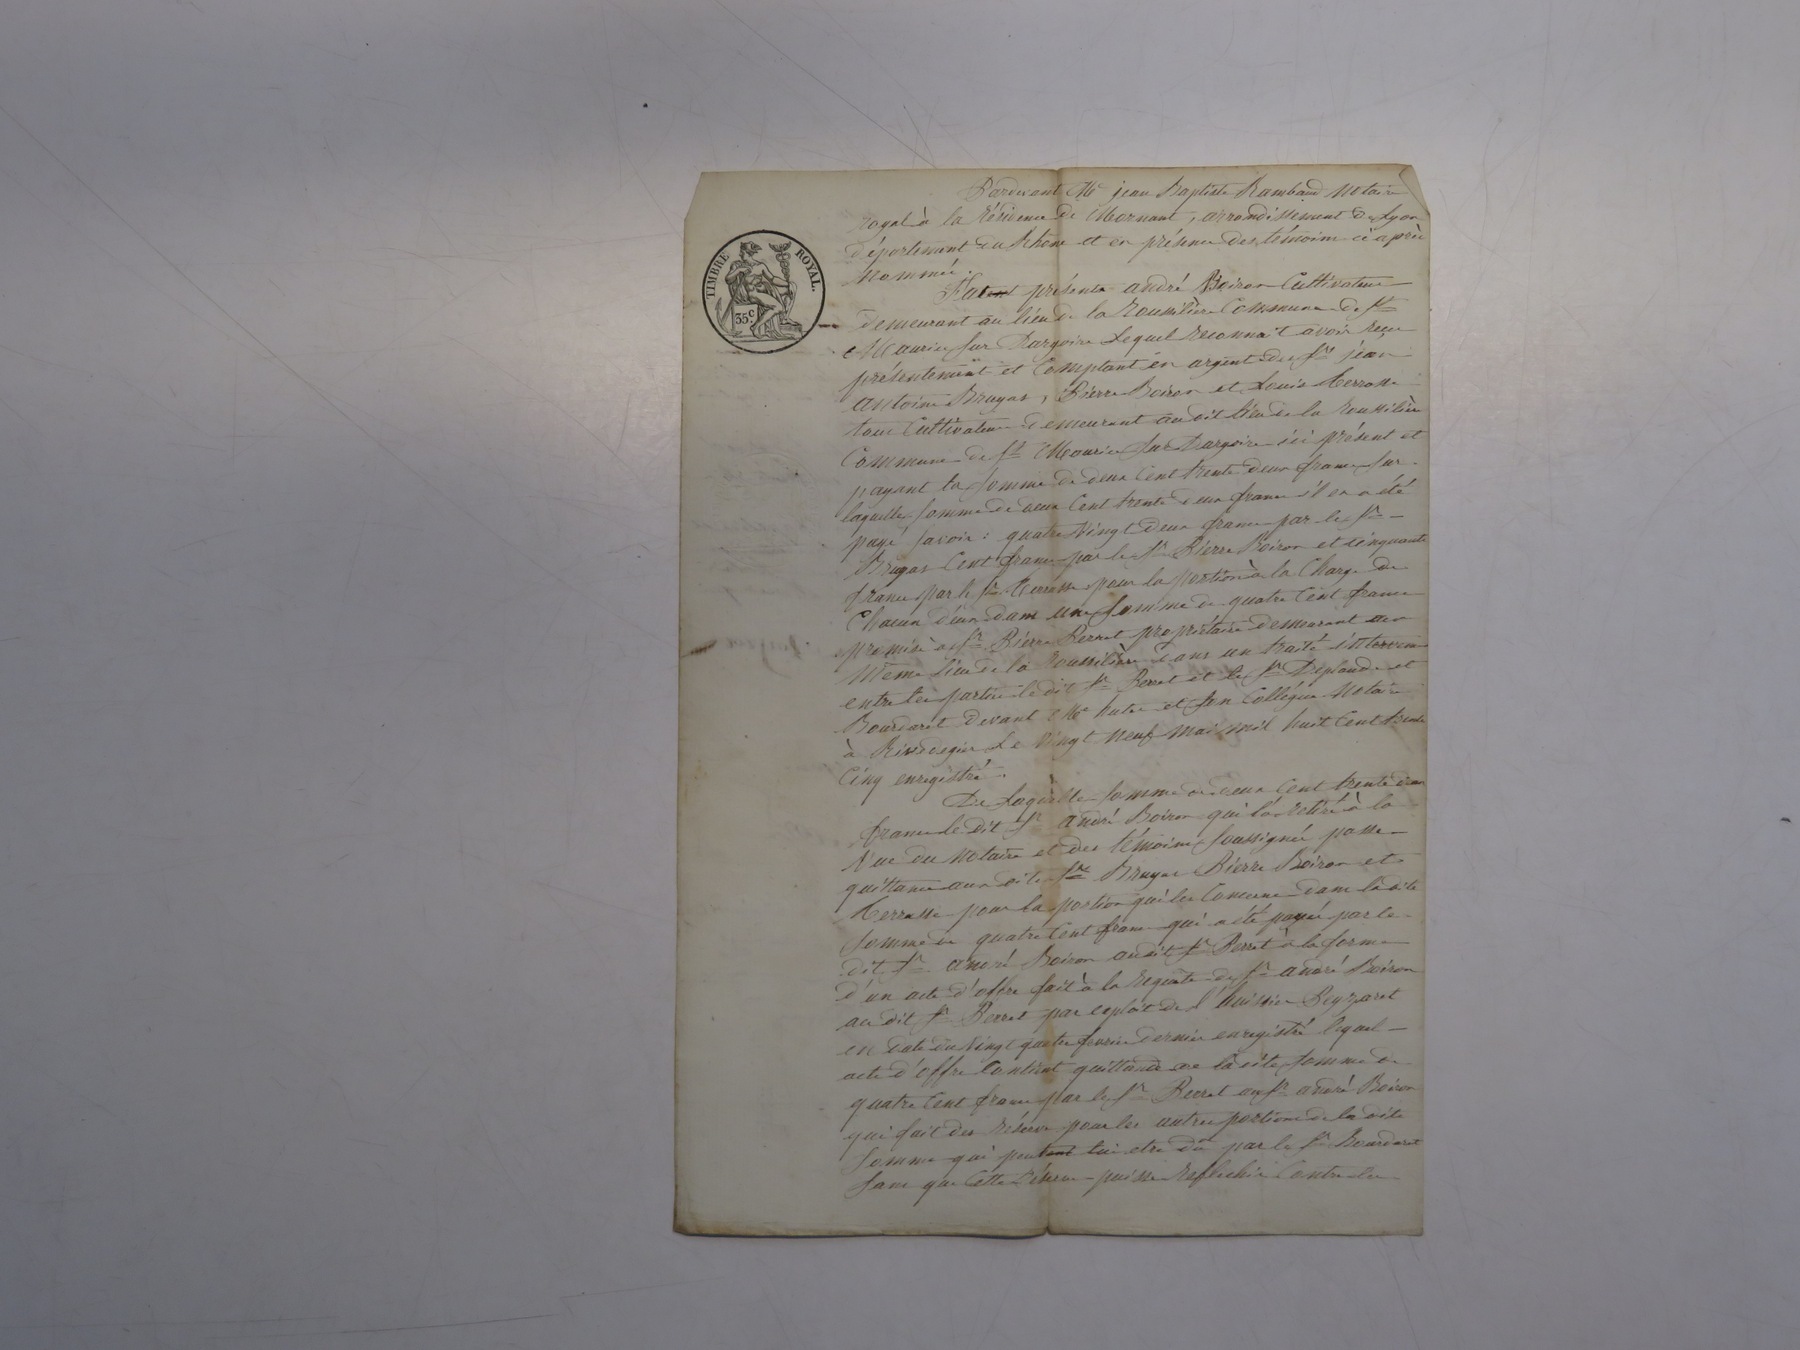 TIMBRE ROYAL.
35c.
Pardevant Me jean Baptiste Rambaud Notaire
royal à la résidence de Mornant, arrondissement de Lyon
département du Rhône et en présence des témoins ci après
nommés.
présente andré Boiron Cultivateur
demeurant au lieu de la Roussilière Commune de St
Maurice sur Dargoire Lequel reconnait avoir reçu
présentement et Comptant en argent des Srs jean
antoine Bruyas, Pierre Boiron et Louis Terrasse
tous Cultivateurs demeurant au dit lieu de la Roussilière
Commune de St Maurice sur Dargoire ici présent et
payant la somme de deux Cent trente deux francs sur
laquelle somme de deux Cent trente deux francs il en a été
payé savoir : quatre Vingt deux francs par le Sr
Bruyas Cent francs par le Sr Pierre Boiron et cinquante
francs par le Sr Terrasse pour la portion à la Charge de
Chacun d'eux dans une somme de quatre Cent francs
promise à Sr Pierre Perret propriétaire demeurant au
Même lieu de la Roussilière dans un traité intervenu
entre les parties le dit Sr Perret et le Sr Deplaude et
Bourdaret devant Me et son Collégue Notaire
à Rivedegier Le Vingt Neuf Mai mil huit Cent trente
Cinq enregistré.
De Laquelle somme de deux Cent trente deux
francs le dit Sr André Boiron qui l'a retiré à la
Vue du Notaire et des témoins soussignés passe
quittance aux dits Srs Bruyas Pierre Boiron et
Terrasse pour la portion qui les Concerne dans la dite
somme de quatre Cent francs qui a été payée par le
dit Sr André Boiron audit Sr Perret à la forme
d'un acte d'offre fait à la requête de Sr andré Boiron
au dit Sr Perret par exploit de l'huissier Peyzaret
en date du Vingt quatre fevrier dernier enregistré lequel
acte d'offre Contient quittance de la dite somme de
quatre Cent francs par le Sr Perret au Sr andré Boiron
qui fait des réserves pour les autres portions de la dite
somme qui peuvent lui etre dû par le Sr Bourdaret
sans que Cette réserve puisse refléchir Contre les